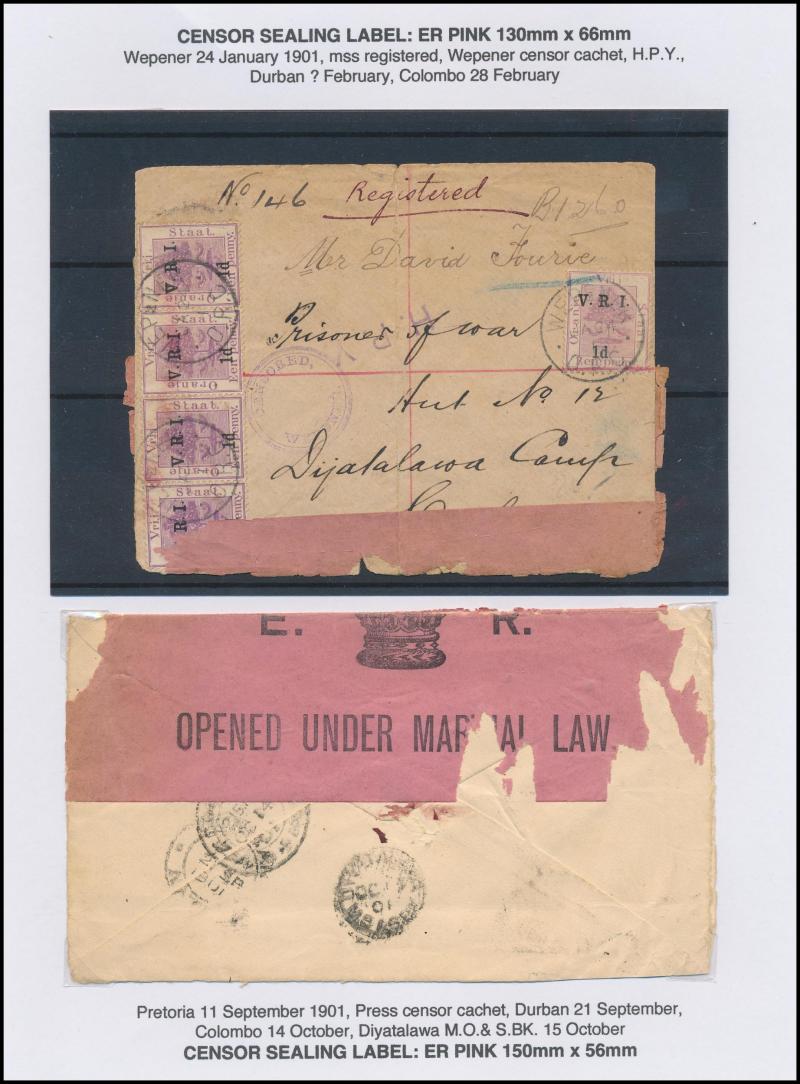 CENSOR SEALING LABEL: ER PINK 130mm x 66mm
Wepener 24 January 1901, mss registered, Wepener censor cachet, H.P.Y.,
Durban ? February, Colombo 28 February
No 146 Registered B1260
Mr David Fourie
Prisoner of war
Hut No 12
Dijatalawa Camp
Staat.
V.R.I.
1d
Oranje
V.R.I.
1d
Oranje
Staat.
V.R.I.
1d
Staat.
R.I.
V.R.I.
1d
CENSORED
E. R.
OPENED UNDER MAR IAL LAW
Pretoria 11 September 1901, Press censor cachet, Durban 21 September,
Colombo 14 October, Diyatalawa M.O.& S.BK. 15 October
CENSOR SEALING LABEL: ER PINK 150mm x 56mm